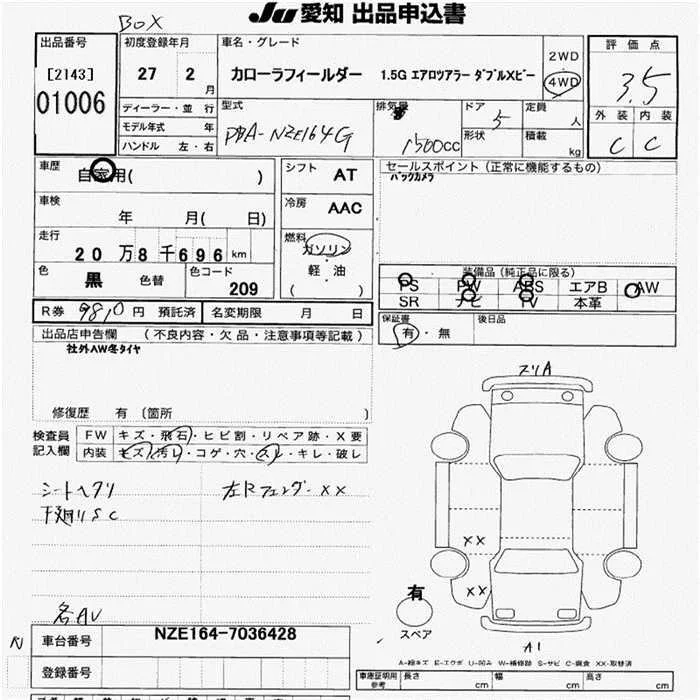 JU 愛知 出品申込書
BOX
出品番号
[2143]
01006
初度登録年月
27 2 月
車名・グレード
カローラフィールダー 1.5G エアロツアラー ダブルXビー
2WD
4WD
評価点
3.5
外装 内装
C C
ディーラー・並行
モデル年式 年
ハンドル 左・右
型式
DBA-NZE164G
排気量
1500cc
ドア
5
形状
定員
人
積載
kg
車歴
自家用( )
車検
年 月( 日)
走行
20万8千696 km
色
黒 色替
色コード
209
シフト
AT
冷房
AAC
燃料
ガソリン
軽・油
( )
セールスポイント (正常に機能するもの)
バックカメラ
装備品 (純正品に限る)
PS PW ABS エアB AW
SR ナビ TV 本革
R券 9810円 預託済 名変期限 月 日
保証書
有・無
後日品
出品店申告欄 (不良内容・欠品・注意事項等記載)
社外AW冬タイヤ
修復歴 有〔箇所 )
検査員
記入欄
FW キズ・飛石・ヒビ割・リペア跡・X要
内装 キズ・汚レ・コゲ・穴・スレ・キレ・破レ
シートヘタリ
左Rフェンダー××
下廻りSC
スリA
××
××
有
スペア
A1
名AV
車台番号
NZE164-7036428
登録番号
A-線キズ E-エクボ U-凹み W-補修跡 S-サビ C-腐食 XX-取替済
車庫証明用
参考
長さ cm
幅 cm
高さ cm